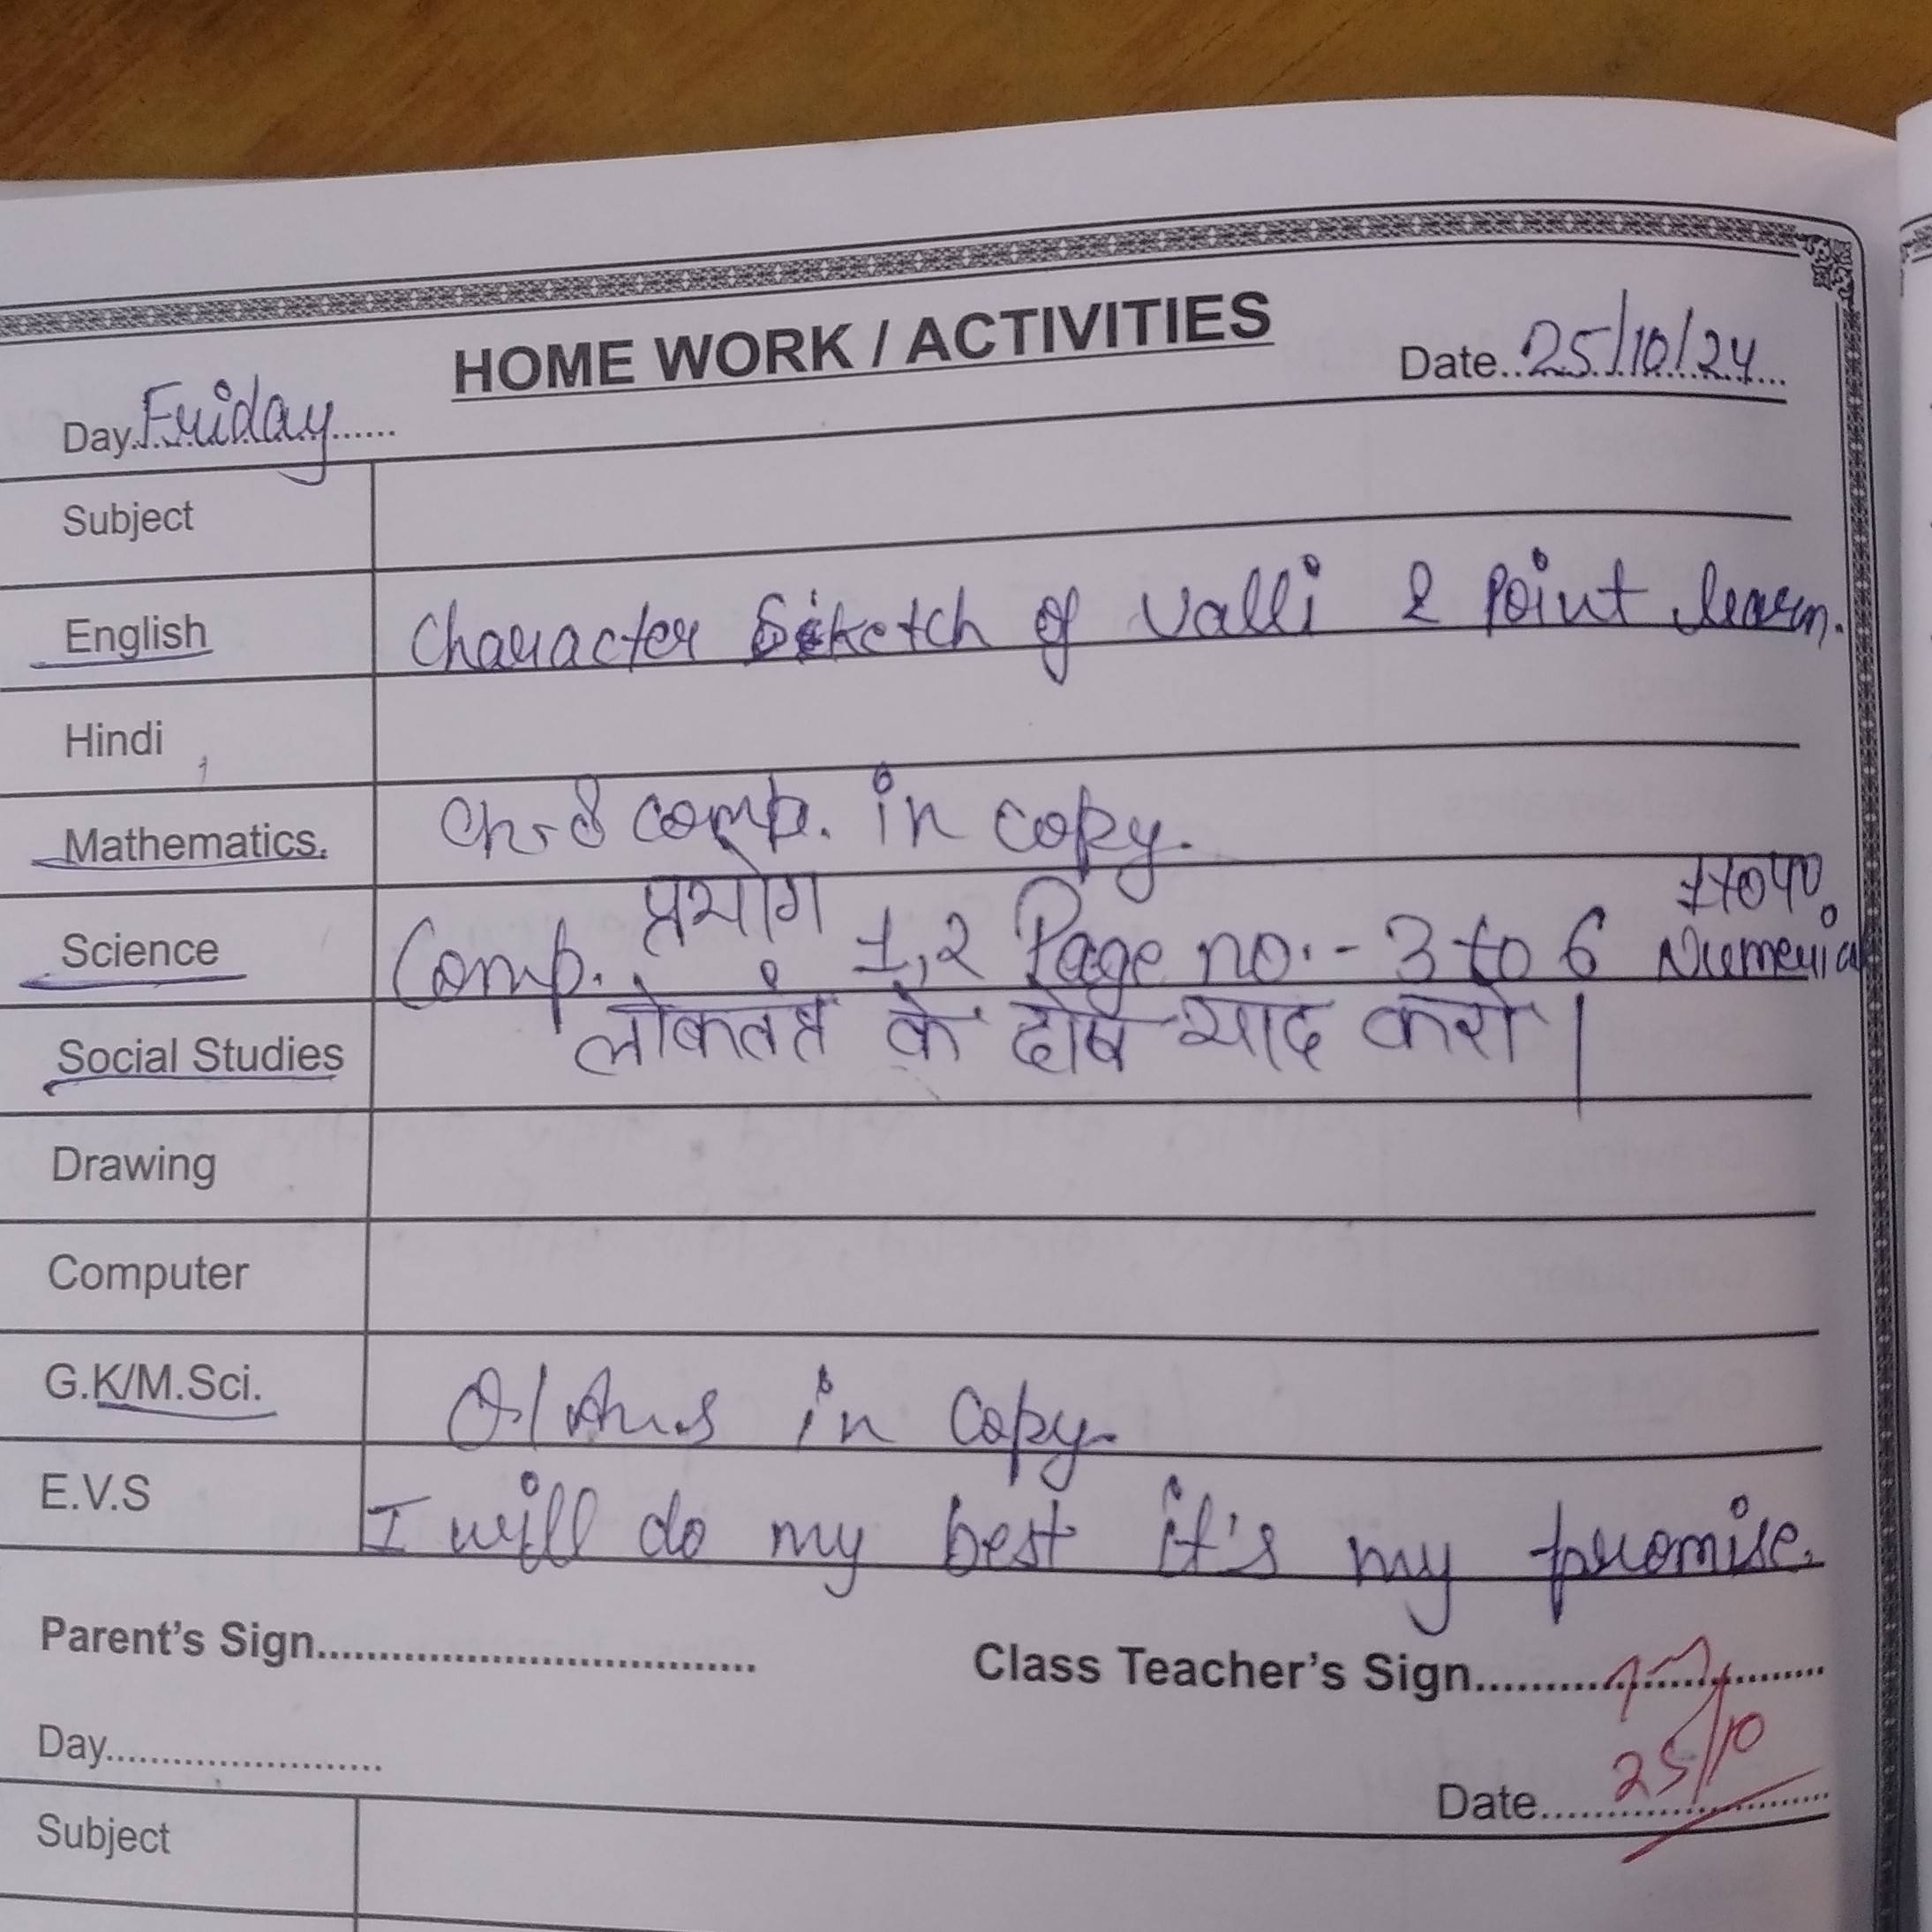 HOME WORK / ACTIVITIES
Day Friday Date 25/10/24
Subject
English Character Sketch of Valli 2 Point learn.
Hindi
Mathematics. Ch-8 comp. in copy.
Science Comp. प्रयोग 1,2 Page no.- 3 to 6 Numerical
Social Studies लोकतंत्र के दोष याद करो।
Drawing
Computer
G.K/M.Sci. Q/Ans in Copy.
E.V.S I will do my best it's my promise.
Parent's Sign Class Teacher's Sign
Day Date 25/10
Subject